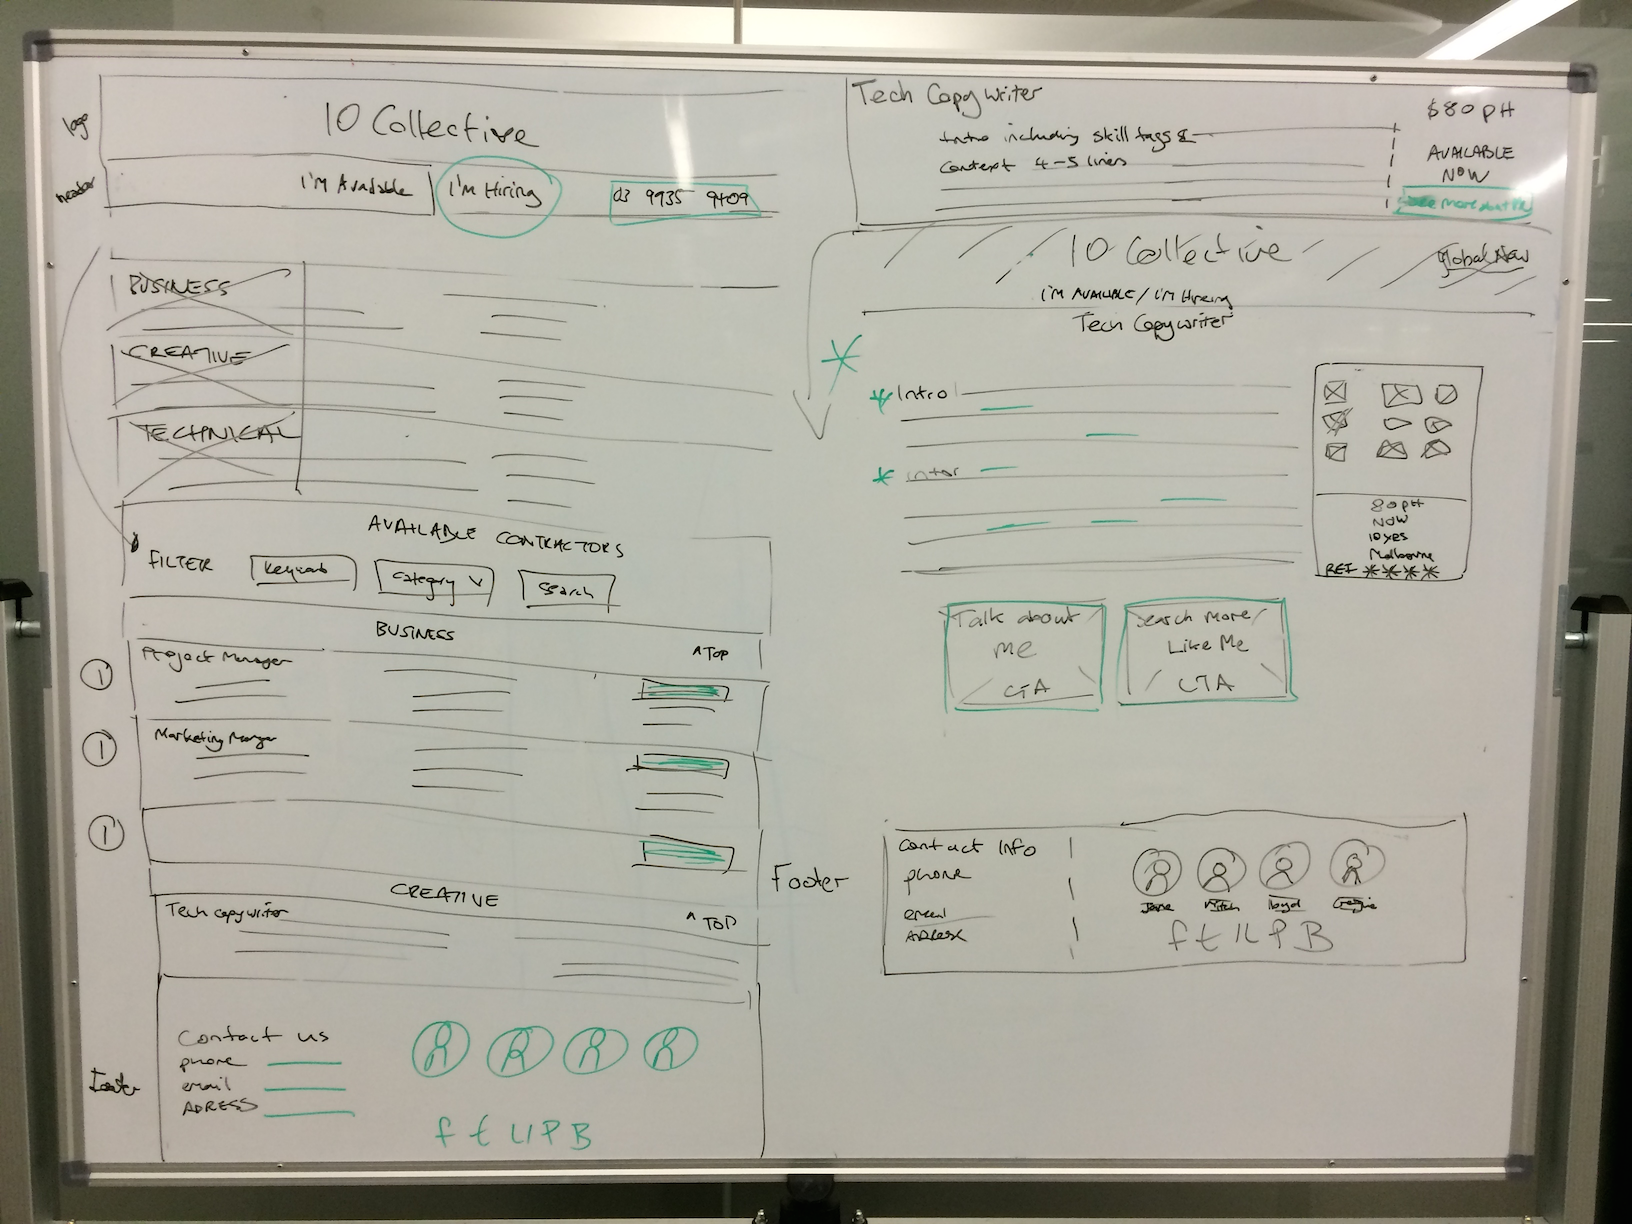 logo
10 Collective
header
I'm Available
I'm Hiring
03 9935 9409
BUSINESS
CREATIVE
TECHNICAL
AVAILABLE CONTRACTORS
FILTER
Category v
Search
BUSINESS
^ TOP
Project Manager
1
Marketing Manger
1
1
CREATIVE
Tech copywriter
^ TOP
Contact us
phone
email
ADRESS
f t U P B
Tech Copywriter
Intro including skill tags &
Content 4-5 lines
$80 pH
AVAILABLE
NOW
See more about Me
10 Collective
Global Nav
I'm AVAILABLE / I'm Hireing
Tech Copywriter
* Intro
*
80 pH
NOW
Melbourne
REF ****
Talk about
me
CTA
Search more
Like Me
CTA
Footer
Contact Info
phone
email
ADRESS
Jane
Mitch
lloyd
f t U P B